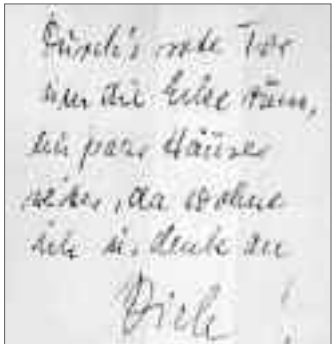 Durch's rote Tor
um die Ecke rum,
ein paar Häuser
weiter, da wohne
ich u. denke an
Dich !